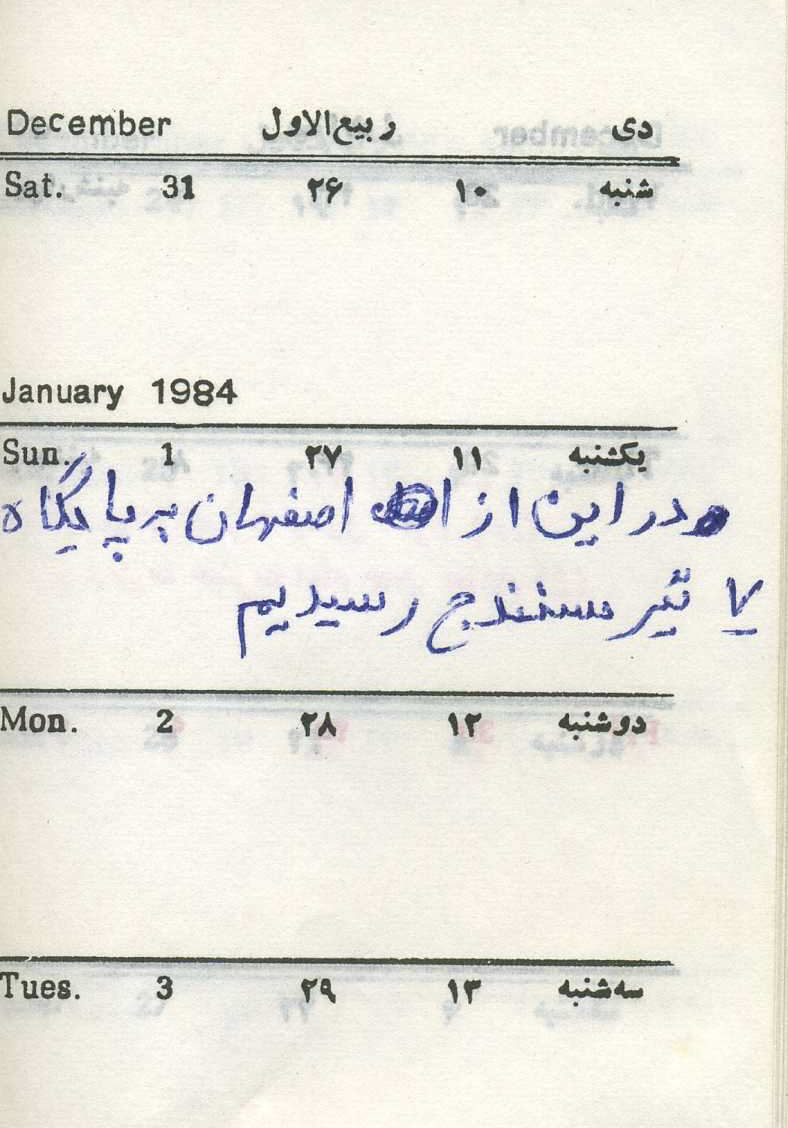 دی ربیع‌الاول December
شنبه ۱۰ ۲۶ 31 Sat.
January 1984
یکشنبه ۱۱ ۲۷ 1 Sun.
در این از اصفهان به پایگاه
۷ تیر سنندج رسیدیم
دوشنبه ۱۲ ۲۸ 2 Mon.
سه‌شنبه ۱۳ ۲۹ 3 Tues.